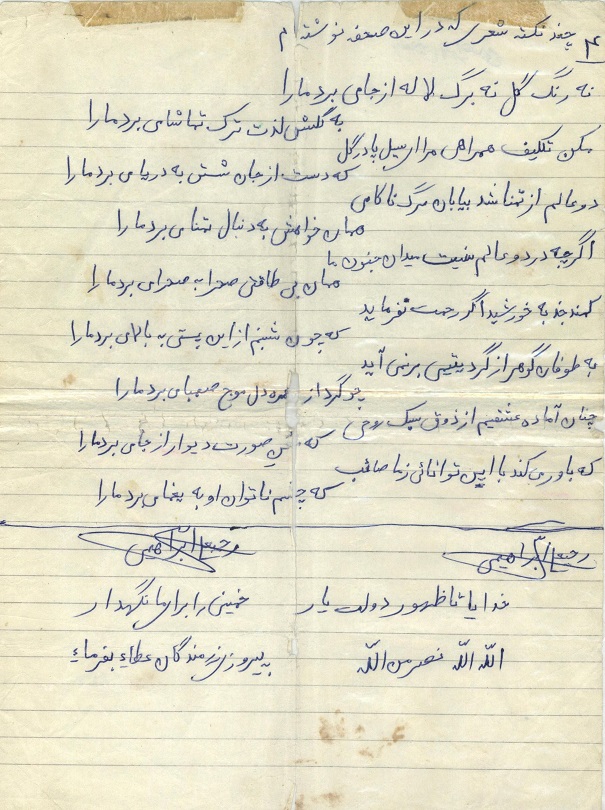 ۴ چند نکته شعری که در این صحفه نوشته ام
نه رنگ گل نه برگ لاله از جامی برد مارا
به گلشن لذت ترک تماشامی برد مارا
مکن تکلیف همراهی مرا ای سیل پا در گل
که دست از جان شستن به دریا می برد مارا
دو عالم از تمنا شد بیابان مرگ ناکامی
همان خواهش به دنبال تمنا می برد مارا
اگرچه در دو عالم نیست میدان جنون ما
همان بی طاقتی صحرا به صحرا می برد مارا
کمند جذبه خورشید اگر رحمت نفرماید
که چون شبنم از این پستی به بالا می برد مارا
به طوفان گوهر از گرد یتیمی برنمی آید
چو گرد از دل موج صهبا می برد مارا
چنان آماده عشقیم از ذوق سبک روحی
که حسن صورت دیوار از جا می برد مارا
که باور می کند با این توانائی ز ما صائب
که چشم ناتوان او به یغما می برد مارا
رجبعلی ابراهیمی
رجبعلی ابراهیمی
خدایا تا ظهور دولت یار
خمینی را برای ما نگهدار
الله الله نصر من الله
به پیروزی رزمندگان عطاء بفرماء